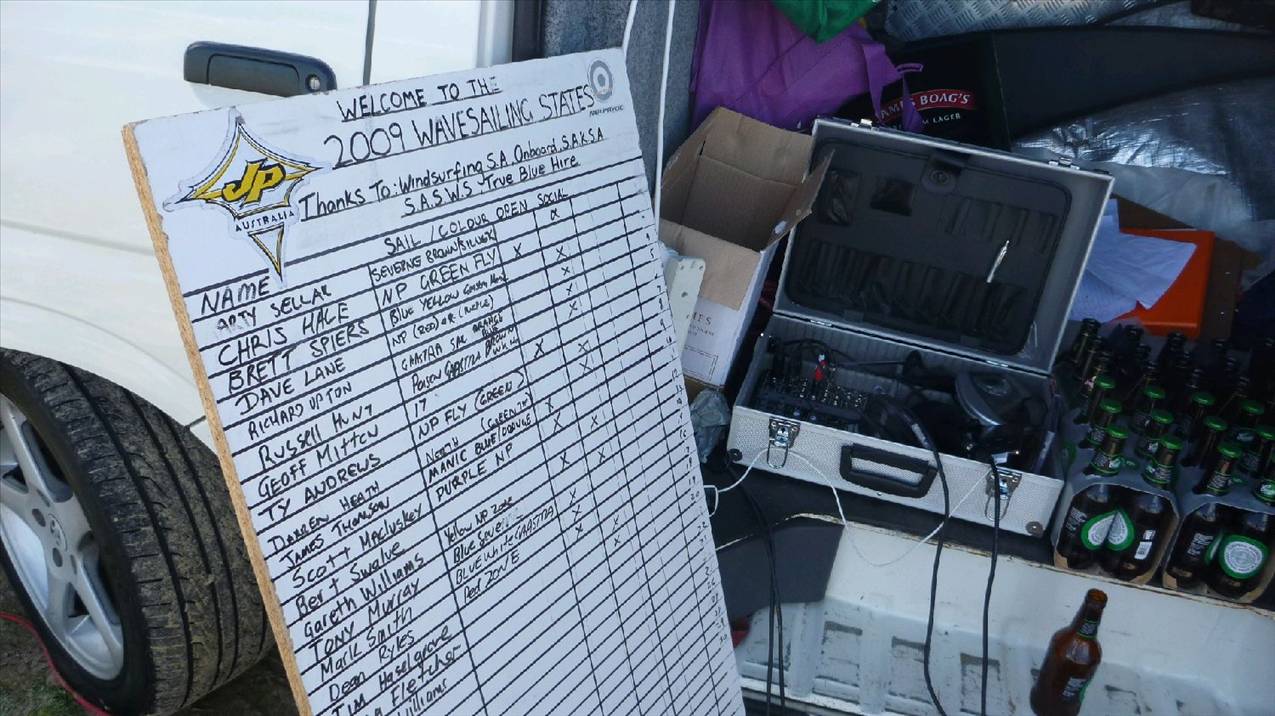 WELCOME TO THE
2009 WAVESAILING STATES
JP
AUSTRALIA
Thanks To: Windsurfing S.A. Onboard, S.A.K.S.A
S.A.S.W.S True Blue Hire
NAME SAIL / COLOUR OPEN SOCIAL
ARTY SELLAR SEVERNE BROWN/SILVER X
CHRIS HALE NP GREEN FLY X X
BRETT SPIERS BLUE YELLOW X
DAVE LANE NP (RED) OR (PURPLE) X
RICHARD UPTON GAASTRA ORANGE
RUSSELL HUNT POISON GAASTRA X X
GEOFF MITTON 17 X
TY ANDREWS NP FLY (GREEN)
DARREN HEATH NORTH (GREENISH) X
JAMES THOMSON MANIC BLUE/ORANGE X X
SCOTT MACLUSKEY PURPLE NP X X
Bert Swolve
Gareth Williams Yellow NP ZONE X
TONY MURRAY Blue Severne X
Mark Smith BLUE white GAASTRA X X
Dean Ryles Red ZONE X
TIM Haselgrove
Fletcher
Williams
JAMES BOAG'S
LAGER